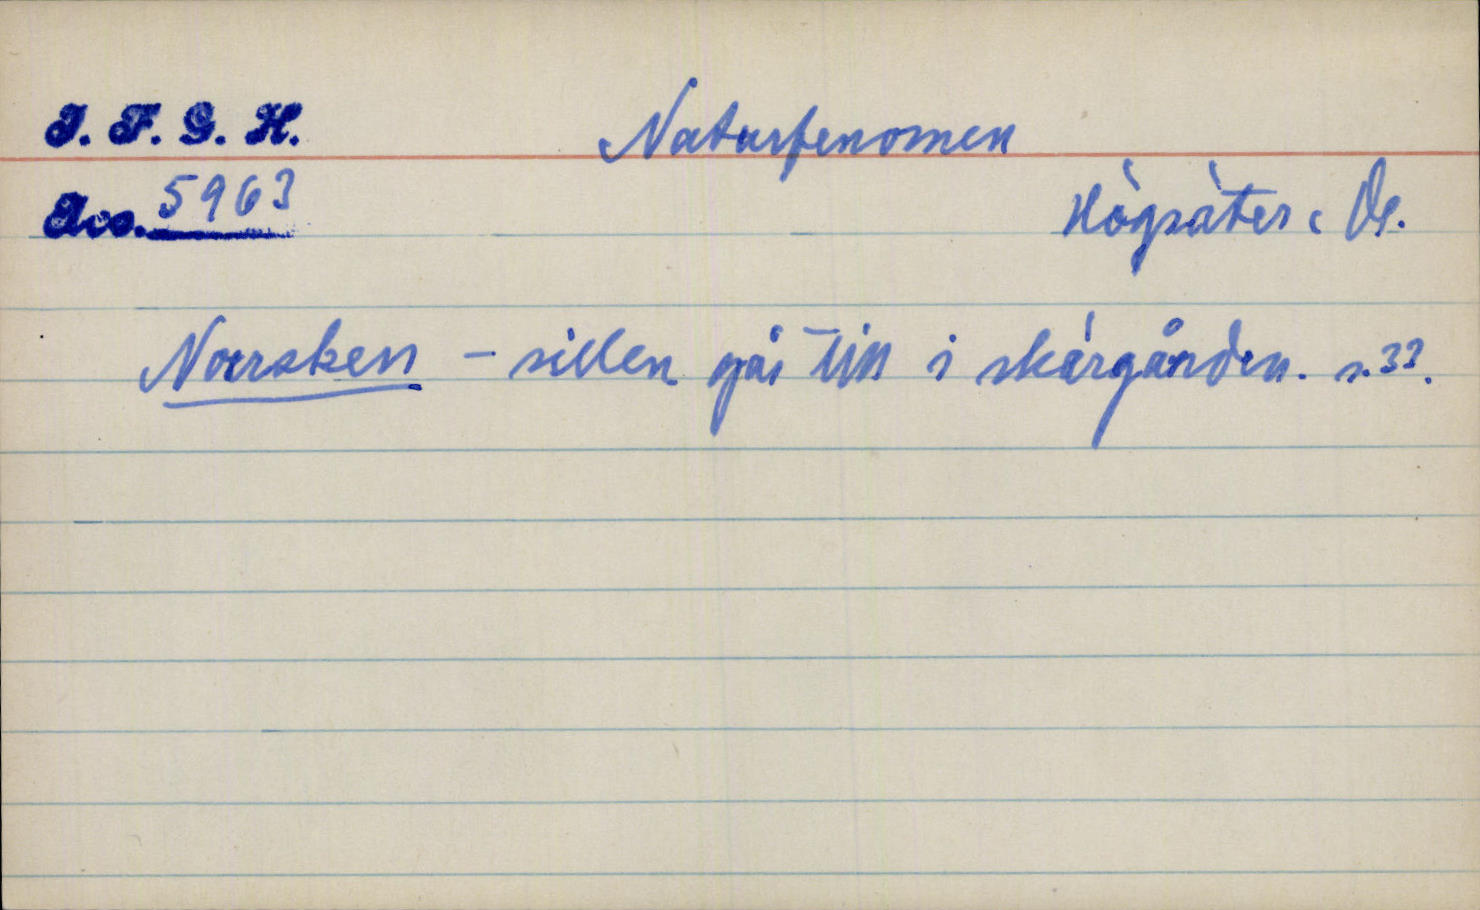 I. F. G. H.
Naturfenomen
Acc. 5963
Högsäter, Ds.
Norrsken - sillen går till i skärgården. s. 33.